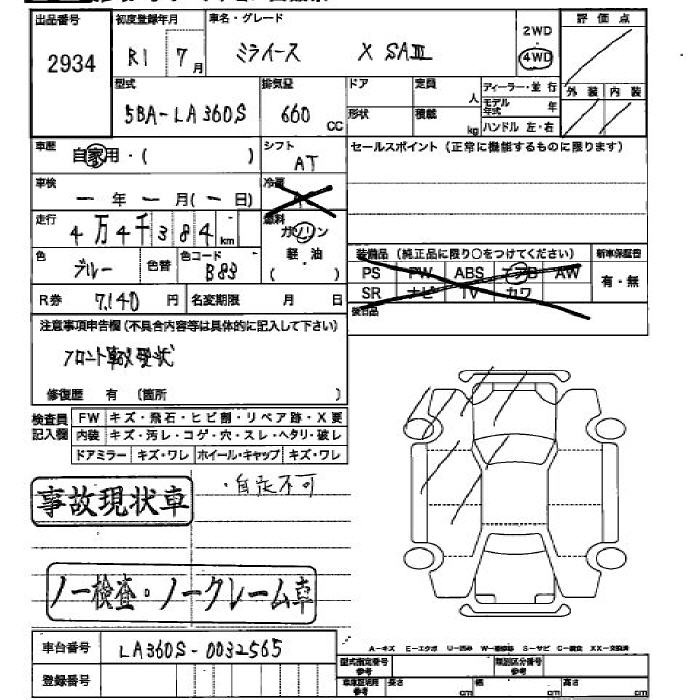 出品番号 2934
初度登録年月 R1 7月
車名・グレード ミライース X SAⅢ
2WD
4WD
評価点
外装 内装
型式 5BA-LA360S
排気量 660 CC
ドア
形状
定員 人
積載 kg
ディーラー・並行
モデル年式 年
ハンドル 左・右
車歴 自家用・( )
シフト AT
セールスポイント (正常に機能するものに限ります)
車検 ー年ー月(ー日)
冷房
走行 4万4千384km
燃料 ガソリン
軽・油
( )
色 ブルー
色替
色コード B83
装備品 (純正品に限り○をつけてください)
PS PW ABS エアB AW
SR ナビ TV カワ
新車保証書
有・無
R券 7,140円
名変期限 月 日
注意事項申告欄(不具合内容等は具体的に記入して下さい)
フロント事故現状
修復歴 有 (箇所 )
検査員記入欄
FW キズ・飛石・ヒビ割・リペア跡・X要
内装 キズ・汚レ・コゲ・穴・スレ・ヘタリ・破レ
ドアミラー キズ・ワレ ホイール・キャップ キズ・ワレ
事故現状車
・自走不可
ノー検査・ノークレーム車
車台番号 LA360S-0032565
登録番号
A-キズ E-エクボ U-凹み W-補修跡 S-サビ C-腐食 XX-交換済
型式指定番号 参考
類別区分番号 参考
長さ cm 幅 cm 高さ cm